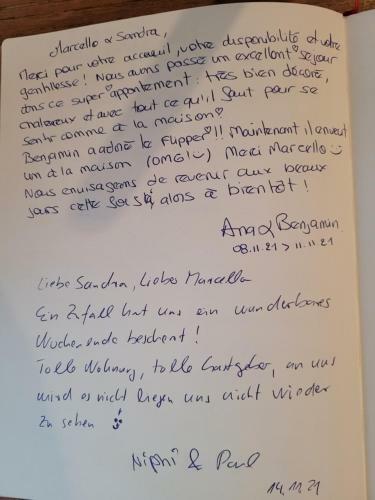 Marcello & Sandra,
Merci pour votre accueil, votre disponibilité et votre
gentillesse! Nous avons passé un excellent séjour
dans ce super appartement: très bien décoré,
chaleureux et avec tout ce qu'il faut pour se
sentir comme à la maison♡
Benjamin a adoré le Flipper!! Maintenant il en veut
un à la maison (OMG!☺) Merci Marcello☺
Nous envisageons de revenir aux beaux
jours cette fois ci, alors à bientôt!
Ana & Benjamin
08.11.21 > 11.11.21
Liebe Sandra, Lieber Marcello
Ein Zufall hat uns ein wunderbares
Wochenende beschert!
Tolle Wohnung, tolle Gastgeber, an uns
wird es nicht liegen uns nicht wieder
zu sehen
& Paul
14.11.21